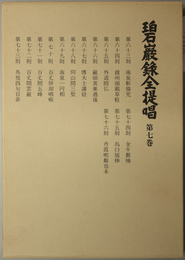 碧巖錄全提唱 第七巻
第六十三則
第七十四則 金牛飯桶
第六十四則 趙州頭戴草鞋
第七十五則 烏臼屈棒
第六十五則 外道問仏
第七十六則 丹霞喫飯也未
第六十六則 巌頭黄巣過後
第六十七則 傅大士講経
第六十八則 仰山問三聖
第六十九則 南泉一円相
第七十則 百丈併却咽喉
第七十一則 百丈問五峰
第七十二則 百丈問雲巌
第七十三則 馬祖四句百非